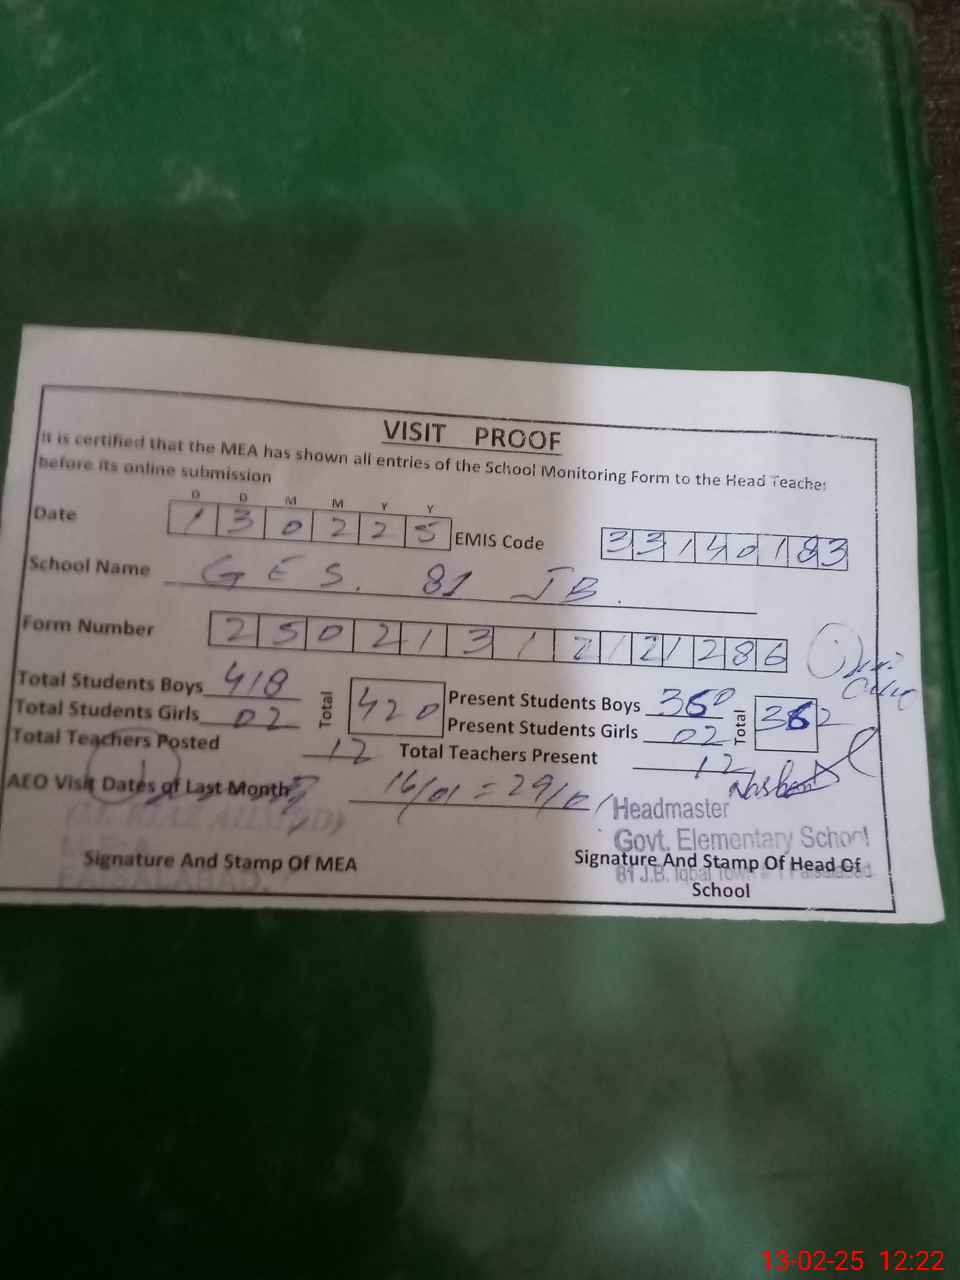 VISIT PROOF
It is certified that the MEA has shown all entries of the School Monitoring Form to the Head Teacher
before its online submission
D D M M Y Y
Date 1 3 0 2 2 5 EMIS Code 3 3 1 4 0 1 8 3
School Name G E S. 81 JB.
Form Number 2 5 0 2 1 3 1 2 1 2 1 2 8 6
Total Students Boys 418 Total 420 Present Students Boys 360 Total 362
Total Students Girls 02 Present Students Girls 02
Total Teachers Posted 12 Total Teachers Present 12
AEO Visit Dates of Last Month 16/01 = 29/01
Headmaster
Govt. Elementary School
81 J.B. Iqbal Town # 1 Faisalabad
FAISALABAD.
Signature And Stamp Of MEA Signature And Stamp Of Head Of
School
13-02-25 12:22